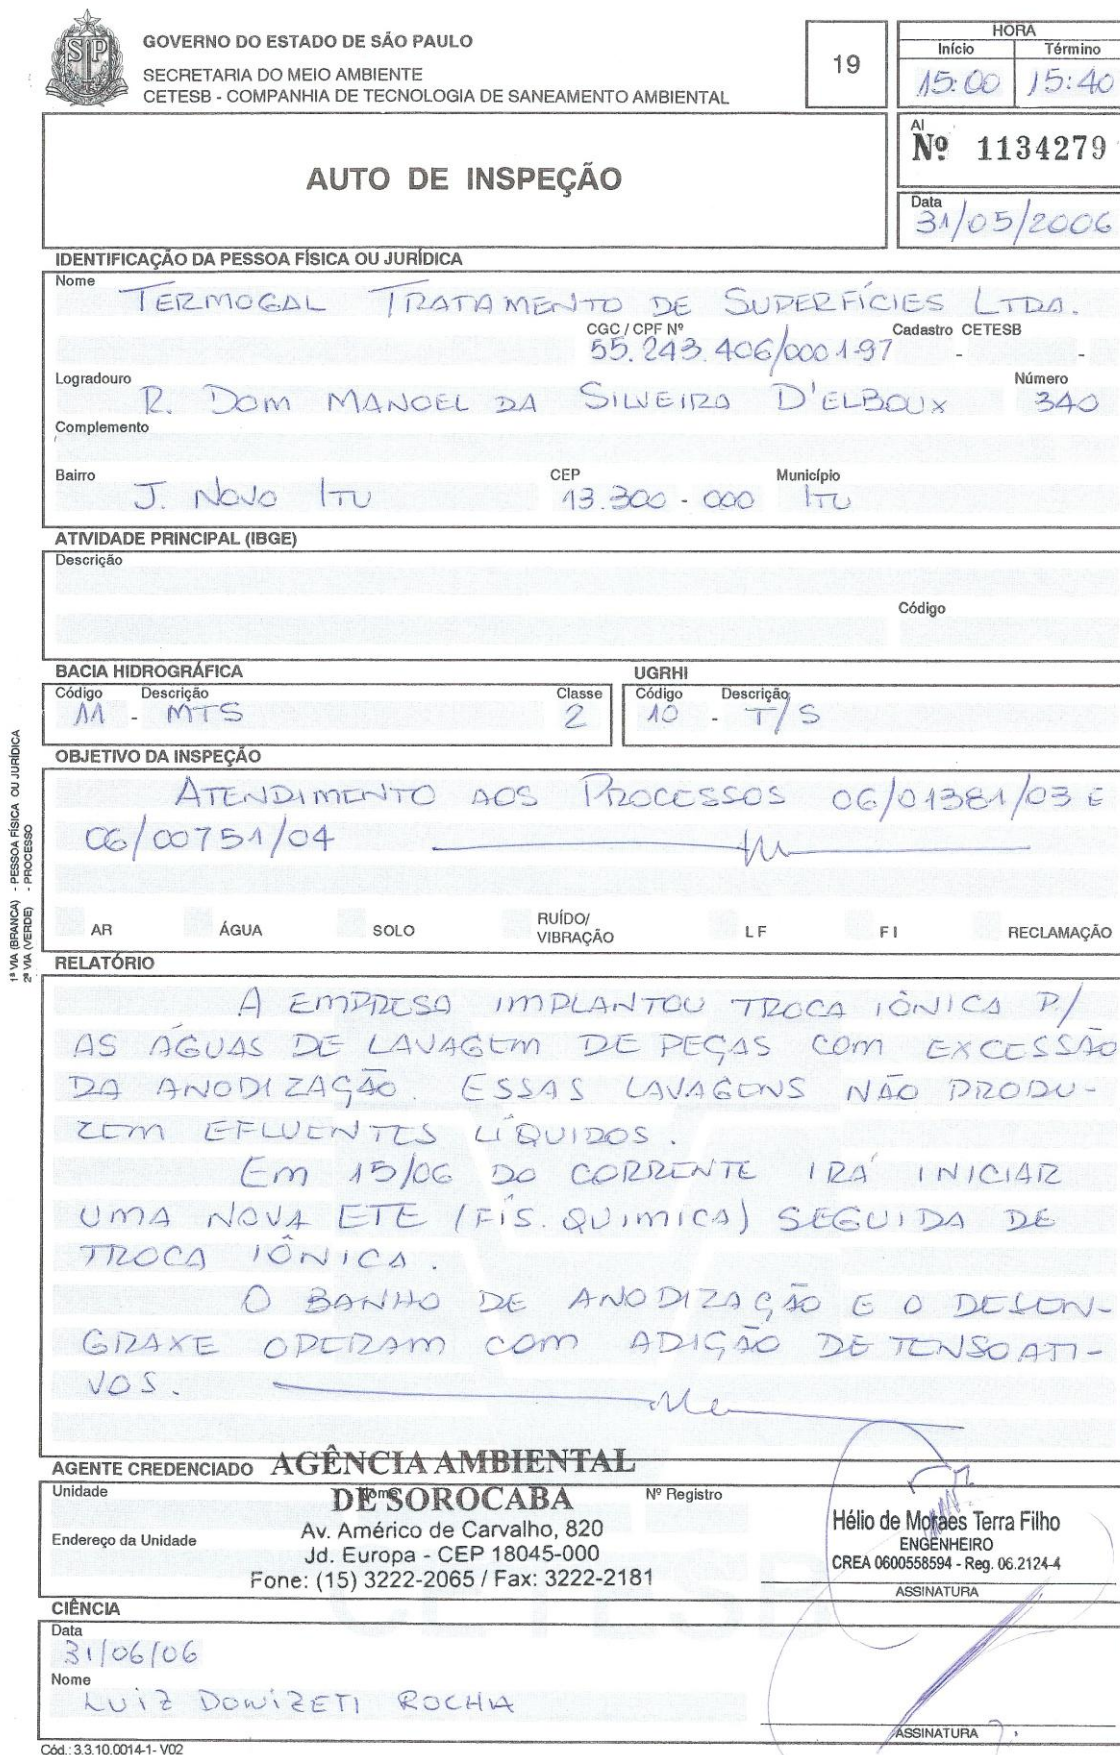 GOVERNO DO ESTADO DE SÃO PAULO
SECRETARIA DO MEIO AMBIENTE
CETESB - COMPANHIA DE TECNOLOGIA DE SANEAMENTO AMBIENTAL
19
HORA
Início Término
15:00 15:40
AUTO DE INSPEÇÃO
AI
Nº 1134279
Data
31/05/2006
IDENTIFICAÇÃO DA PESSOA FÍSICA OU JURÍDICA
Nome
TERMOGAL TRATAMENTO DE SUPERFÍCIES LTDA.
CGC / CPF Nº Cadastro CETESB
55.243.406/0001-97 - -
Logradouro Número
R. DOM MANOEL DA SILVEIRA D'ELBOUX 340
Complemento
Bairro CEP Município
J. NOVO ITU 13.300-000 ITU
ATIVIDADE PRINCIPAL (IBGE)
Descrição
Código
BACIA HIDROGRÁFICA UGRHI
Código Descrição Classe Código Descrição
11 - MTS 2 10 - T/S
OBJETIVO DA INSPEÇÃO
ATENDIMENTO AOS PROCESSOS 06/01381/03 E
06/00751/04
AR ÁGUA SOLO RUÍDO/ VIBRAÇÃO L F F I RECLAMAÇÃO
RELATÓRIO
A EMPRESA IMPLANTOU TROCA IÔNICA P/
AS ÁGUAS DE LAVAGEM DE PEÇAS COM EXCESSÃO
DA ANODIZAÇÃO. ESSAS LAVAGENS NÃO PRODU-
ZEM EFLUENTES LÍQUIDOS.
EM 15/06 DO CORRENTE IRÁ INICIAR
UMA NOVA ETE (FÍS. QUIMICA) SEGUIDA DE
TROCA IÔNICA.
O BANHO DE ANODIZAÇÃO E O DESEN-
GRAXE OPERAM COM ADIÇÃO DE TENSOATI-
VOS.
AGENTE CREDENCIADO AGÊNCIA AMBIENTAL
Unidade DE SOROCABA Nome Nº Registro
Endereço da Unidade Av. Américo de Carvalho, 820
Jd. Europa - CEP 18045-000
Fone: (15) 3222-2065 / Fax: 3222-2181
Hélio de Moraes Terra Filho
ENGENHEIRO
CREA 0600558594 - Reg. 06.2124-4
ASSINATURA
CIÊNCIA
Data
31/06/06
Nome
LUIZ DONIZETI ROCHA
ASSINATURA
Cód.: 3.3.10.0014-1- V02
1ª VIA (BRANCA) - PESSOA FÍSICA OU JURÍDICA
2ª VIA (VERDE) - PROCESSO
CETESB